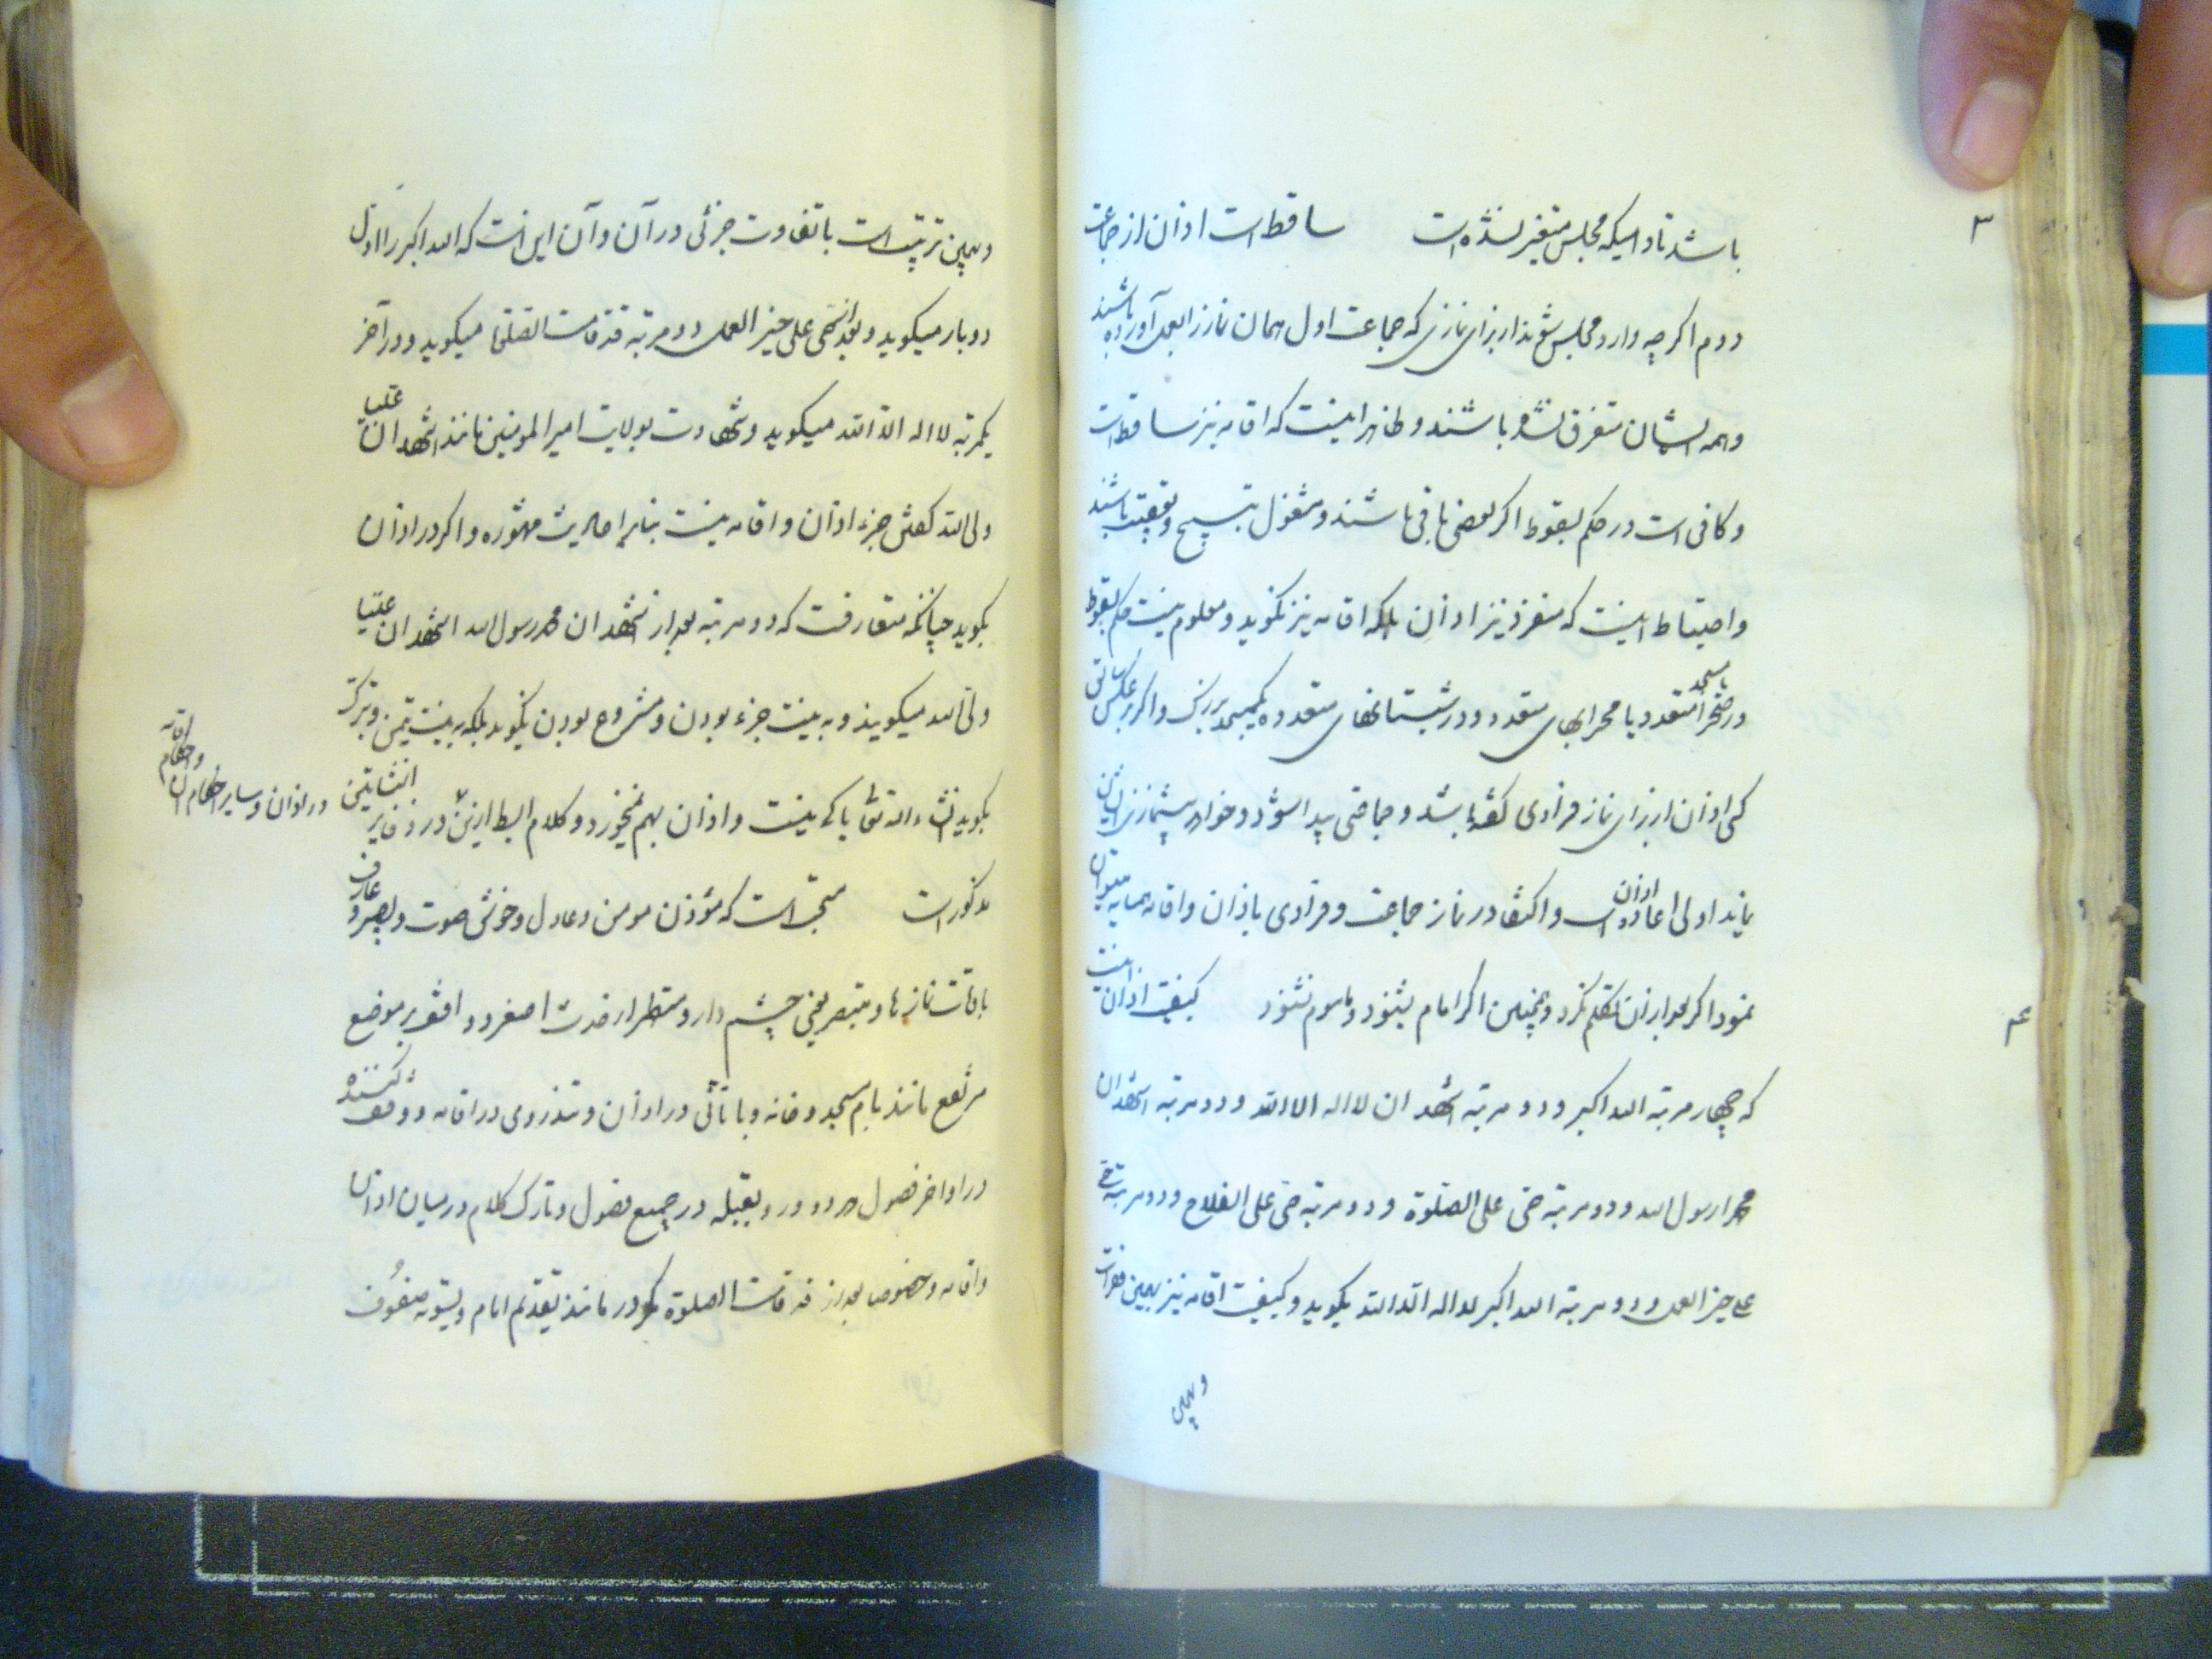 ۳
باشد تا دامیکه مجلس متغیر نشده است ساقط است اذان از جماعت
دوم اگرچه وارد مجلس شوند از برای نمازی که جماعت اول همان نماز را بعمل آورده باشند
و همه ایشان متفرق نشده باشند و ظاهر اینست که اقامه نیز ساقط است
و کافی است در حکم بسقوط اگر بعضی باقی باشند و مشغول تسبیح و تعقیب باشند
و احتیاط اینست که منفرد نیز اذان بلکه اقامه نیز نگوید و معلوم نیست حکم بسقوط
در صحرا یا مسجد متعدد یا محرابهای متعدد و در شبستانهای متعدده یک مسجد بزرگ و اگر
کسی اذان از برای نماز فرادی گفته باشد و جماعتی پیدا شود و خواهد پیشنمازی
نماید اولی اعاده اذان است و اکتفا در نماز جماعت و فرادی باذان و اقامه همسایه میتوان
نمود اگر بعد از آن تکلم نکرد و همچنین اگر امام بشنود و ماموم نشنود کیفیت اذان اینست
۴
که چهار مرتبه الله اکبر و دو مرتبه اشهد ان لا اله الا الله و دو مرتبه اشهد ان
محمدا رسول الله و دو مرتبه حی علی الصلوة و دو مرتبه حی علی الفلاح و دو مرتبه حی
علی خیر العمل و دو مرتبه الله اکبر لا اله الا الله بگوید و کیفیت اقامه نیز بهمین فقرات
و بهمین
و بهمین ترتیب است با تفاوت جزئی در آن و آن این است که الله اکبر را اول
دوبار میگوید و بعد از حی علی خیر العمل دو مرتبه قد قامت الصلوة میگوید و در آخر
یکمرتبه لا اله الا الله میگوید و شهادت بولایت امیر المومنین مانند اشهد ان علیا
ولی الله گفتن جزء اذان و اقامه نیست بنابر احادیث مشهوره و اگر در اذان
بگوید چنانکه متعارفست که دو مرتبه بعد از اشهد ان محمد رسول الله اشهد ان علیا
ولی الله میگویند و به نیت جزء بودن و مشروع بودن نگوید بلکه به نیت تیمن و تبرک
بگوید انشاء الله تعالی باکی نیست و اذان بهم نمیخورد و کلام ابسط از این در ذخایر
انشائین در اذان و سایر احکام آن و احکام اقامه
مذکور است مستحب است که مؤذن مومن و عادل و خوش صوت و بصیر و عارف
باوقات نمازها و مبتصر یعنی چشم دار و متطهر از حدث اصغر و واقف بر موضع
مرتفع مانند بام مسجد و خانه و با تأنی در اذان و تندروی در اقامه و وقف کننده
در اواخر فصول هر دو و رو بقبله در جمیع فصول و تارک کلام در میان اذان
و اقامه و خصوصا بعد از قد قامت الصلوة مگر در مانند تقدیم امام و تسویه صفوف